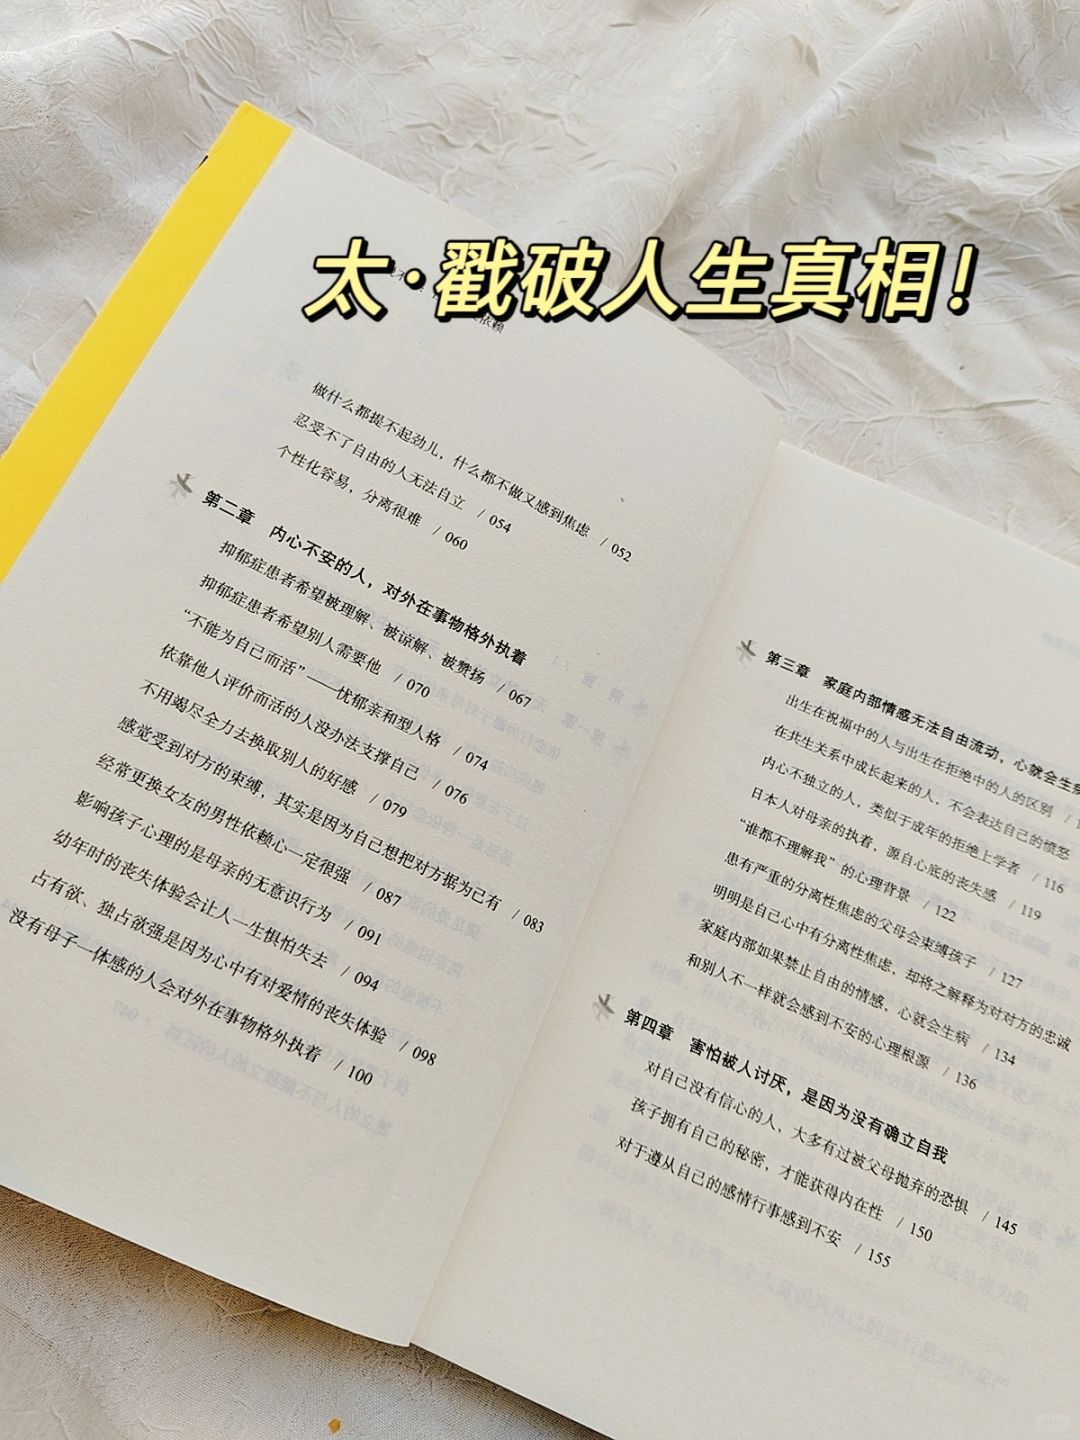 太·戳破人生真相！
依赖
做什么都提不起劲儿，什么都不做又感到焦虑 / 052
忍受不了自由的人无法自立 / 054
个性化容易，分离很难 / 060
第二章 内心不安的人，对外在事物格外执着
抑郁症患者希望被理解、被谅解、被赞扬 / 067
抑郁症患者希望别人需要他 / 070
“不能为自己而活”——忧郁亲和型人格 / 074
依靠他人评价而活的人没办法支撑自己 / 076
不用竭尽全力去换取别人的好感 / 079
感觉受到对方的束缚，其实是因为自己想把对方据为己有 / 083
经常更换女友的男性依赖心一定很强 / 087
影响孩子心理的是母亲的无意识行为 / 091
幼年时的丧失体验会让人一生惧怕失去 / 094
占有欲、独占欲强是因为心中有对爱情的丧失体验 / 098
没有母子一体感的人会对外在事物格外执着 / 100
第三章 家庭内部情感无法自由流动，心就会生病
出生在祝福中的人与出生在拒绝中的人的区别 /
在共生关系中成长起来的人，不会表达自己的愤怒
内心不独立的人，类似于成年的拒绝上学者 / 116
日本人对母亲的执着，源自心底的丧失感 / 119
“谁都不理解我”的心理背景 / 122
患有严重的分离性焦虑的父母会束缚孩子 / 127
明明是自己心中有分离性焦虑，却将之解释为对对方的忠诚
家庭内部如果禁止自由的情感，心就会生病 / 134
和别人不一样就会感到不安的心理根源 / 136
第四章 害怕被人讨厌，是因为没有确立自我
对自己没有信心的人，大多有过被父母抛弃的恐惧 / 145
孩子拥有自己的秘密，才能获得内在性 / 150
对于遵从自己的感情行事感到不安 / 155